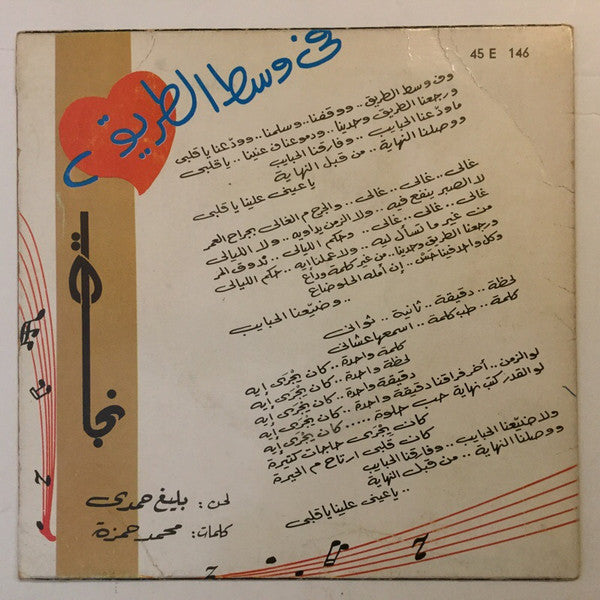 في وسط الطريق
45 E 146
نجاة
وفي وسط الطريق .. ووقفنا .. وسلمنا .. وودّعنا يا قلبي
ورجعنا الطريق وحدينا .. ودموعنا ف عنينا .. يا قلبي
ما ودّعنا الحبايب .. وفارقنا الحبايب
ووصلنا النهاية .. من قبل النهاية
يا عيني علينا يا قلبي
غالي .. غالي .. غالي .. والجرح م الغالي بجراح العمر
لا الصبر ينفع فيه .. ولا الزمن يداويه .. ولا الليالي
غالي .. غالي .. غالي .. وحكم الليالي .. ندوق المر
من غير ما نسأل ليه .. ولا عملنا إيه .. حكم الليالي
ورجعنا الطريق وحدينا .. من غير كلمة وداع
وكل واحد فينا حس .. إن أمله الحلو ضاع
.. وضيّعنا الحبايب
لحظة .. دقيقة .. ثانية .. ثواني
كلمة .. طب كلمة .. اسمعها عشاني
كلمة واحدة .. كان يجرى إيه
لحظة واحدة .. كان يجرى إيه
دقيقة واحدة .. كان يجرى إيه
لو الزمن .. أخر فراقنا دقيقة واحدة .. كان يجرى إيه
لو القدر كتب نهاية حب حلوة ..... كان يجرى إيه
كان يجرى حاجات كتيرة
كان قلبي ارتاح م الحيرة
ولا ضيّعنا الحبايب .. وفارقنا الحبايب
ووصلنا النهاية .. من قبل النهاية
.. يا عيني علينا يا قلبي
لحن : بليغ حمدى
كلمات : محمد حمزة